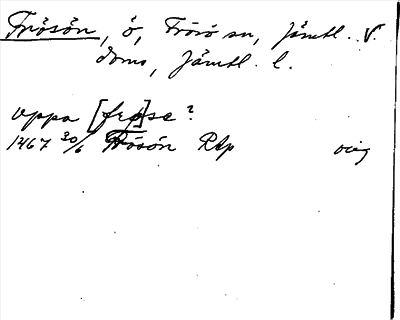 Frösön, ö, Frösö sn, Jämtl. V.
doms, Jämtl. l.
uppa [frøsø?
1467 30/6 Frösön Rep orig